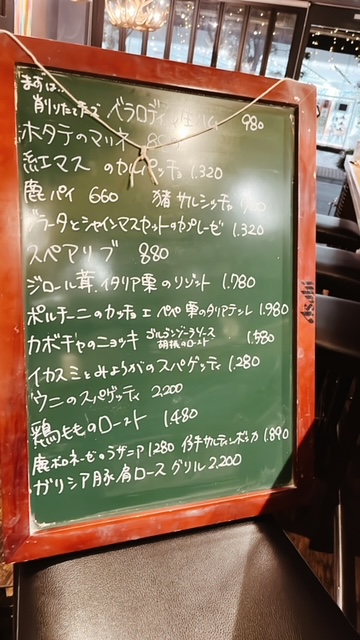 まずは、
削りたてチーズ ベラロディ 生ハム 980
ホタテのマリネ
紅マス のカルパッチョ 1.320
鹿パイ 660 猪サルシッチャ
ブラータとシャインマスカットのカプレーゼ 1.320
スペアリブ 880
ジロール茸、イタリア栗のリゾット 1.780
ポルチーニのカッチョエペペ 栗のタリアテレ 1.980
カボチャのニョッキ ゴルゴンゾーラソース 胡桃のロースト 1.580
イカスミとみょうがのスパゲッティ 1.280
ウニのスパゲッティ 2,200
鶏もものロースト 1.480
鹿ボロネーゼのラザニア 1280 仔牛サルティンボッカ 1.890
ガリシア豚肩ロース グリル 2,200
Asahi